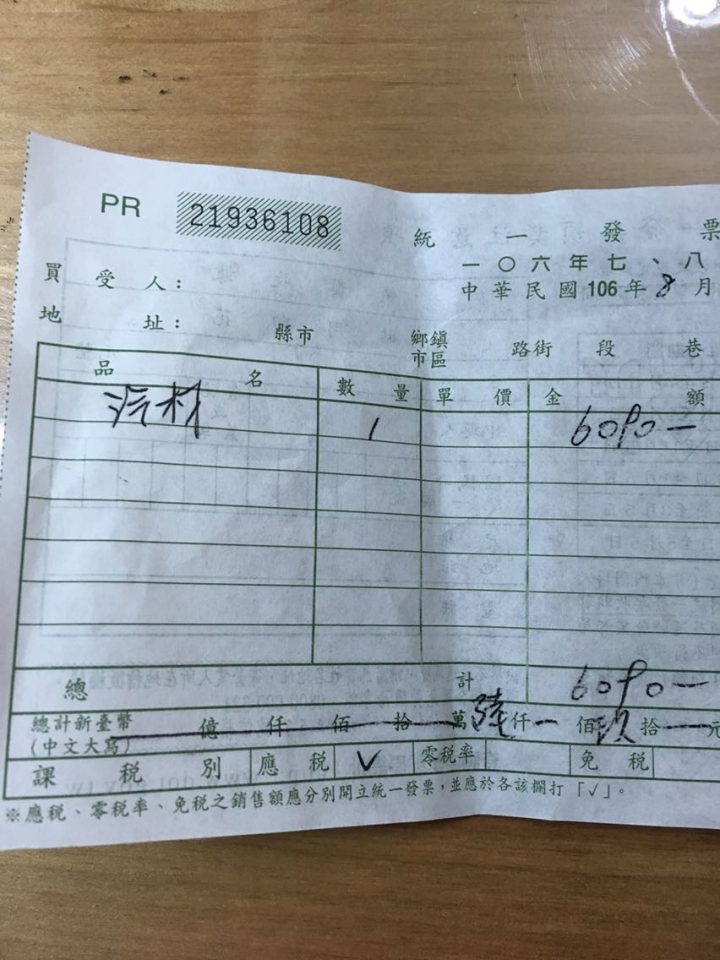 PR 21936108
統一發票
一〇六年七、八
中華民國106年8月
買受人：
地址： 縣市 鄉鎮市區 路街 段 巷
品名 數量 單價 金額
汽材 1 6090一
總計 6090一
總計新臺幣(中文大寫) 億 仟 佰 拾 萬 陸仟 一 佰 玖拾 一 元
課稅別 應稅 ✓ 零稅率 免稅
※應稅、零稅率、免稅之銷售額應分別開立統一發票，並應於各該欄打「✓」。